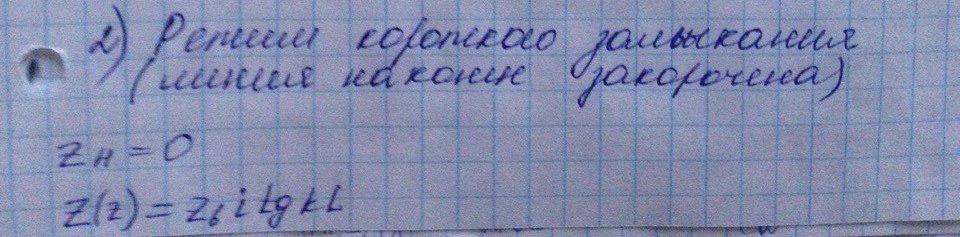 2) Режим короткого замыкания
(линия на конце закорочена)
Zн = 0
Z(z) = Zв i tg kL